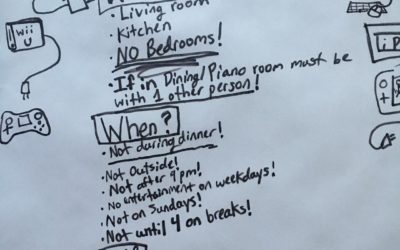 · Living room
· Kitchen
· NO Bedrooms!
· If in Dining/Piano room must be
with 1 other person!
When?
· Not during dinner!
· Not Outside!
· Not after 9pm!
· No entertainment on weekdays!
· Not on Sundays!
· Not until 4 on breaks!
Wii
U